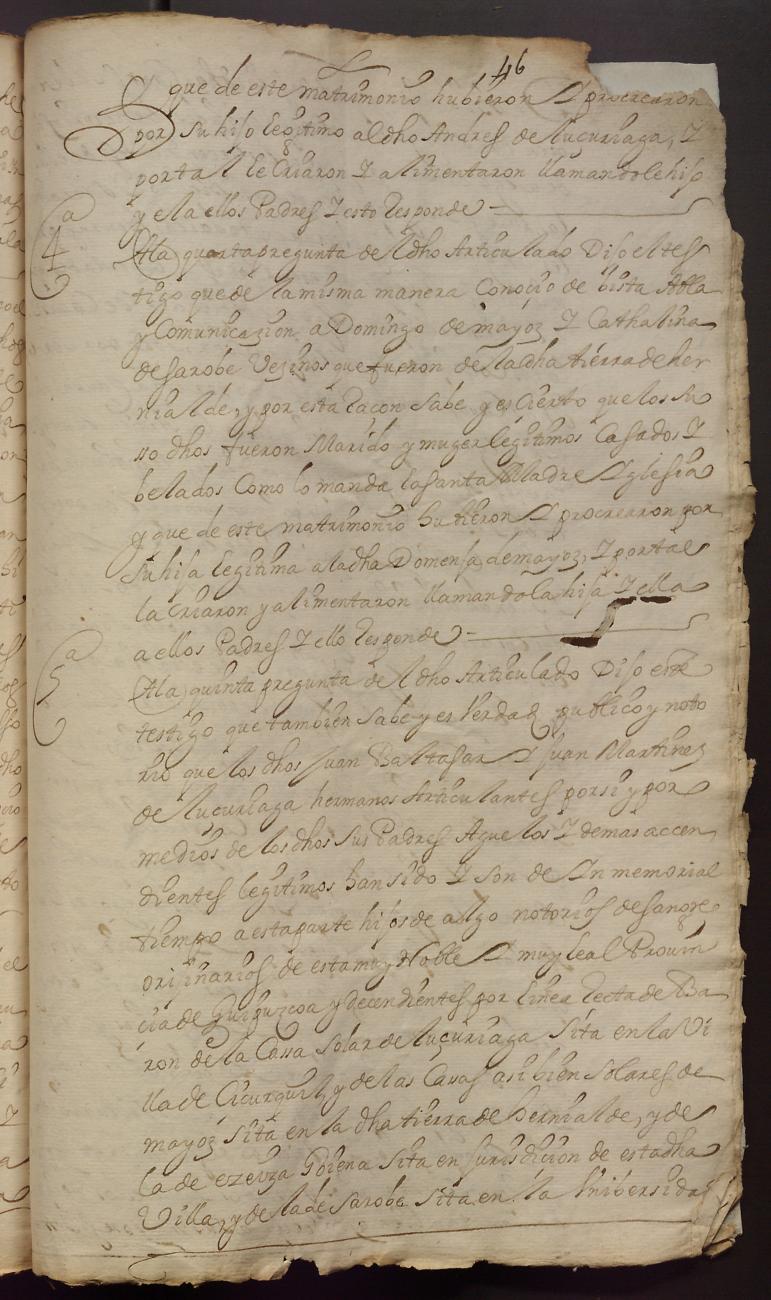 46
Y que de este matrimonio hubieron Y procrearon
por su hijo legitimo al dho Andres de lucuriaga, Y
por tal le Criaron Y alimentaron llamandole hijo
y el a ellos Padres Y esto Responde
4a
A la quarta pregunta del dho Articulado Dijo el tes
tigo que de la misma manera Conoçio de bista Abla
y Comunicazion a Domingo de mayoz Y Cathalina
de sarobe Vezinos que fueron de la dha tierra de her
nialde, y por esta Raçon Sabe y es Cierto que los su
so dhos fueron Marido y muger legitimos Casados Y
belados Como lo manda la santa Madre Yglesia
y que de este matrimonio hubieron Y procrearon por
su hija legitima a la dha Domenja de mayoz, Y por tal
la Criaron y alimentaron llamandola hija Y ella
a ellos Padres Y ello Responde
5a
A la quinta pregunta del dho Articulado Dijo este
testigo que tambien sabe y es Verdad publico y noto
rio que los dhos Juan Baltasar Y Juan Martinez
de lucuriaga hermanos Articulantes por si y por
medios de los dhos sus Padres Aguelos Y demas accen
dientes legitimos han sido Y son de Ynmemorial
tiempo a esta parte hijos de algo notorios de sangre
orijinarios de esta muy Noble Y muy leal Provin
cia de Guipuzcoa y decendientes por linea Recta de Ba
ron de la Cassa Solar de lucuriaga sita en la Vi
lla de Cicurquil, y de las Casas asi bien Solares de
mayoz sita en la dha tierra de hernialde, y de
la de ezeiza Goiena sita en jurisdicion de esta dha
Villa, y de la de Sarobe sita en la Unibersidad